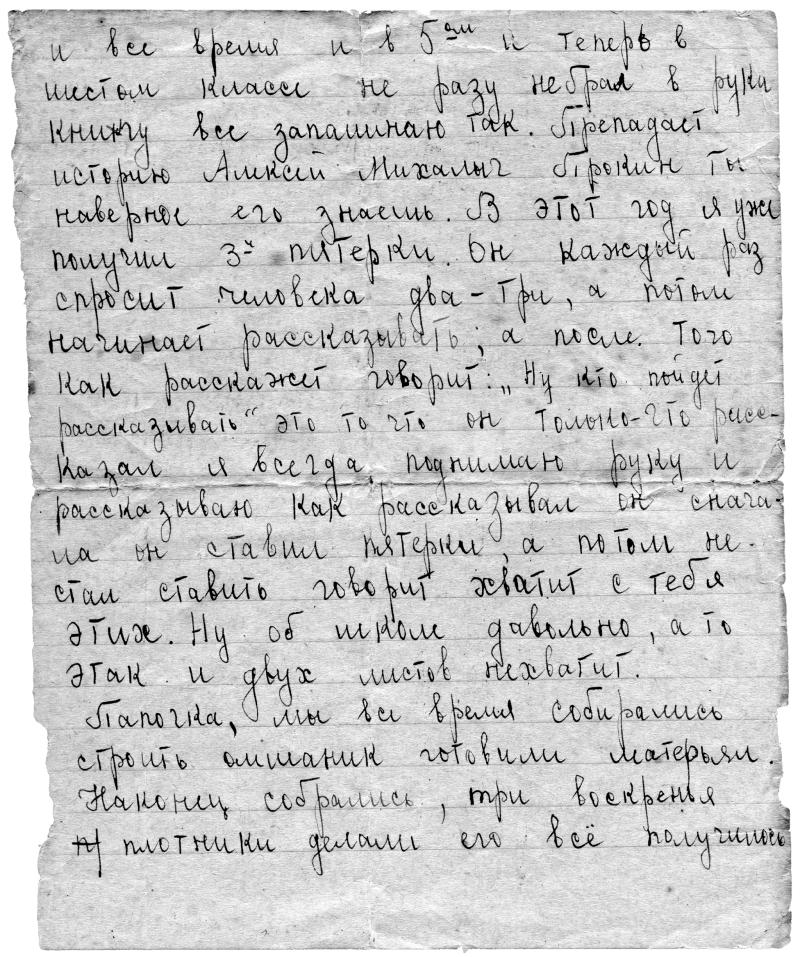 и все время и в 5ом и теперь в
шестом классе не разу небрал в руки
книгу все запаминаю так. Препадает
историю Алексей Михалыч Прокин ты
наверное его знаешь. В этот год я уже
получил 3-и пятерки. Он каждый раз
спросит человека два-три, а потом
начинает рассказывать; а после. Того
как расскажет говорит: „Ну кто пойдет
рассказывать“ это то что он только-что расс-
казал я всегда, поднимаю руку и
рассказываю как рассказывал он снача-
ла он ставил пятерки, а потом не-
стал ставить говорит хватит с тебя
этих. Ну об школе давольно, а то
этак и двух листов нехватит.
Папочка, мы все время собирались
строить омшаник готовили матерьял.
Наконец собрались, три воскренья
плотники делали его всё получилось